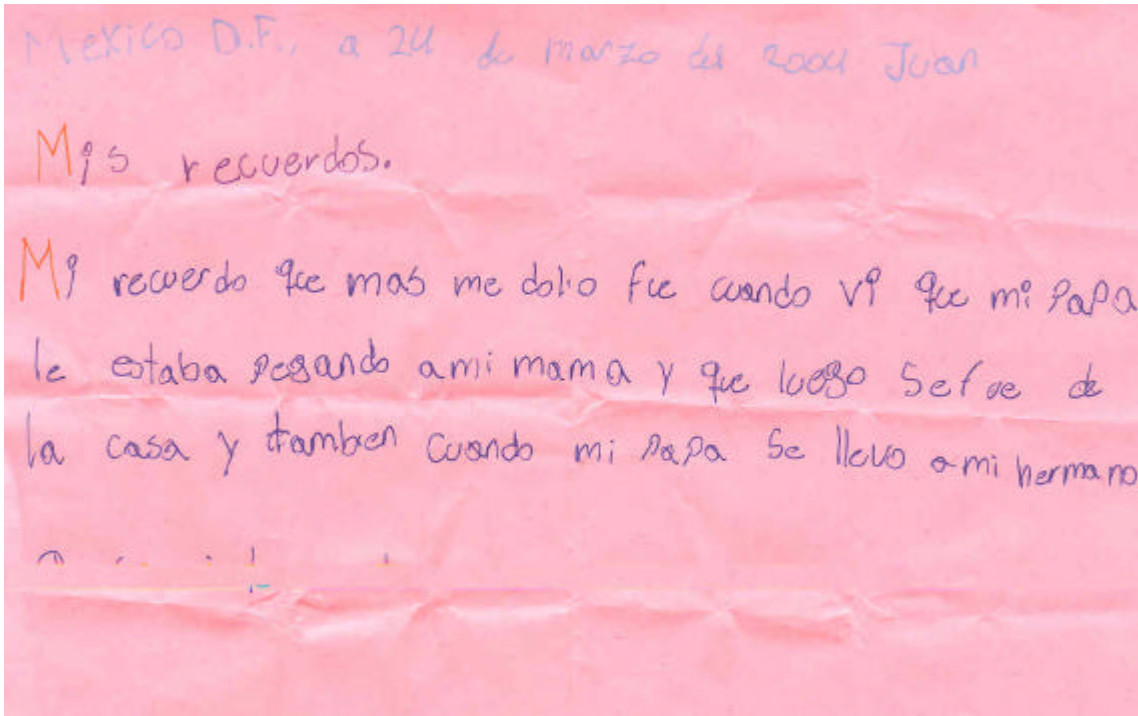 Mexico D.F., a 24 de marzo del 2004 Juan
Mis recuerdos.
Mi recuerdo que mas me dolio fue cuando vi que mi papa
le estaba pegando a mi mama y que luego se fue de
la casa y tambien cuando mi papa se llevo a mi hermano